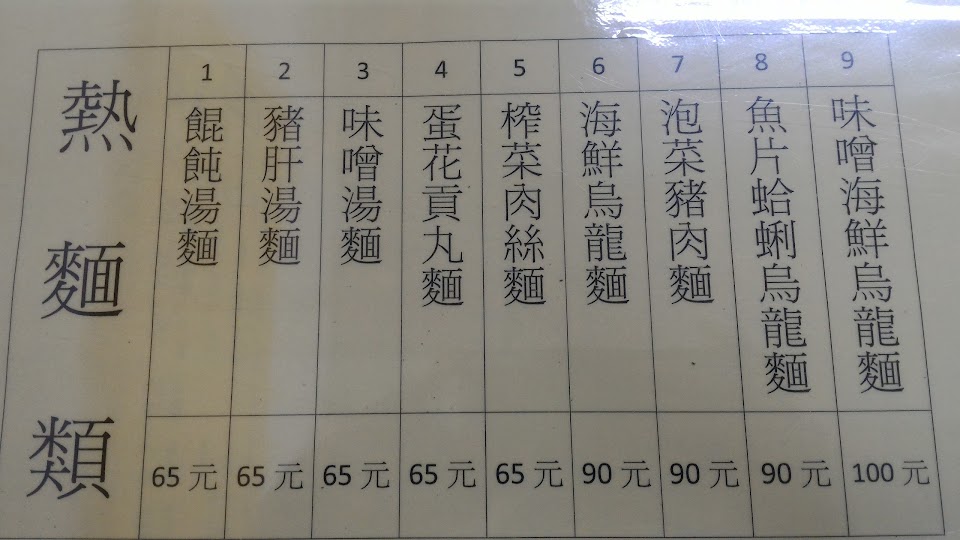 熱麵類
1 2 3 4 5 6 7 8 9
餛飩湯麵
豬肝湯麵
味噌湯麵
蛋花貢丸麵
榨菜肉絲麵
海鮮烏龍麵
泡菜豬肉麵
魚片蛤蜊烏龍麵
味噌海鮮烏龍麵
65元 65元 65元 65元 65元 90元 90元 90元 100元